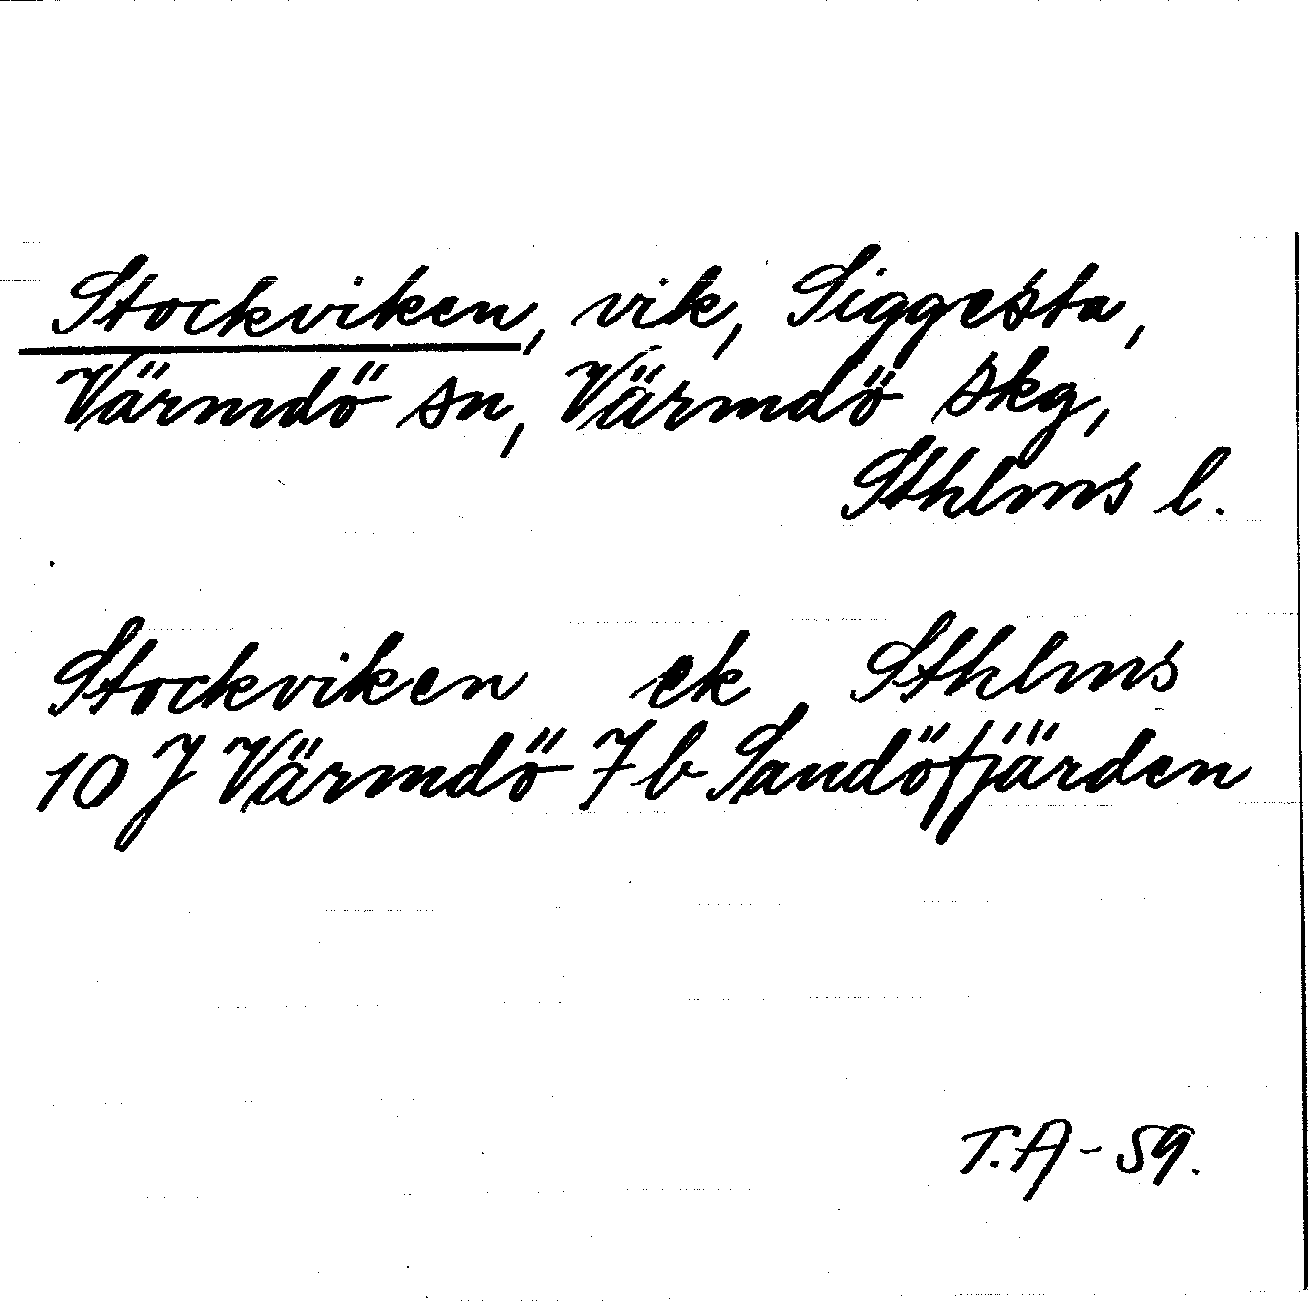 Stockviken, vik, Siggesta,
Värmdö sn, Värmdö skg,
Sthlms l.
Stockviken ek Sthlms
10 J Värmdö 7b Sandöfjärden
T.A - 59.